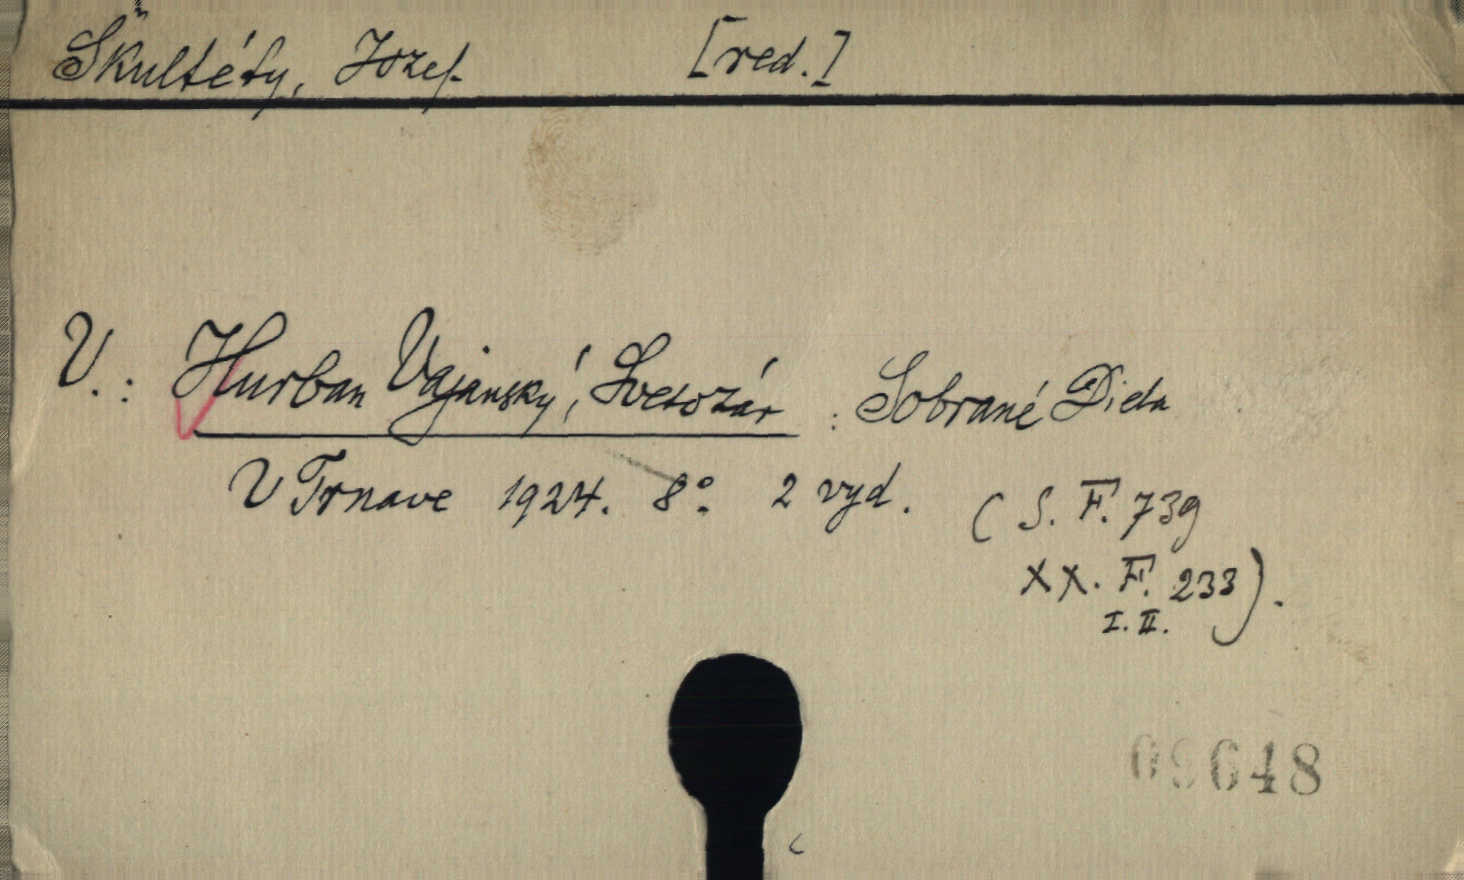 Škultéty, Jozef [red.]
V.: Hurban Vajanský, Svetozár : Sobrané Diela
V Trnave 1924. 8°. 2 vyd. (S. F. 739
XX. F. 233).
I. II.
09648